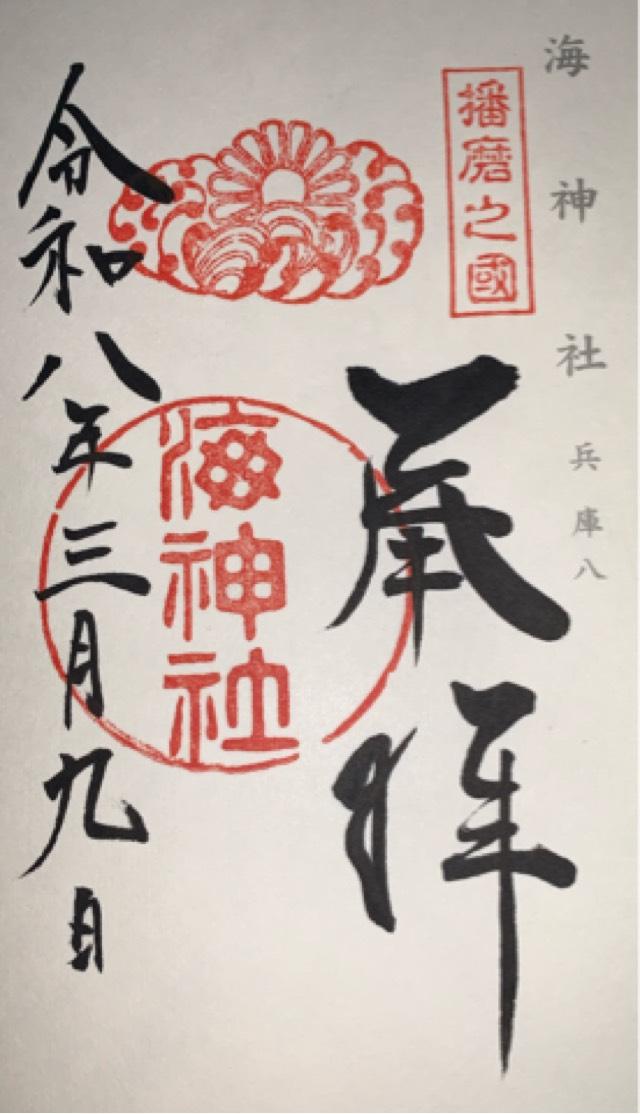 海神社 兵庫八
播磨之國
奉拝
海神社
令和八年三月九日